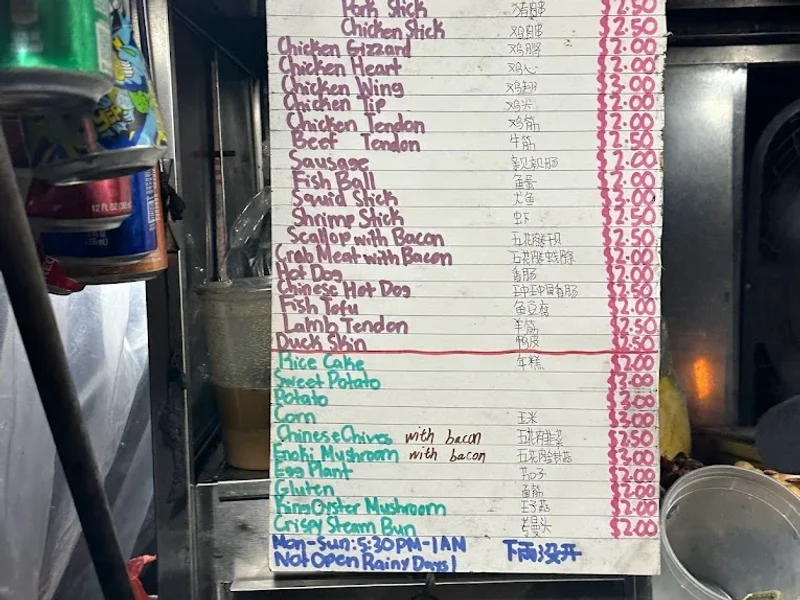 Pork Stick 猪串 $2.50
Chicken Stick 鸡串 $2.50
Chicken Gizzard 鸡胗 $2.00
Chicken Heart 鸡心 $2.00
Chicken Wing 鸡翅 $3.00
Chicken Tip 鸡尖 $2.00
Chicken Tendon 鸡筋 $2.00
Beef Tendon 牛筋 $2.50
Sausage $2.00
Fish Ball 鱼蛋 $2.00
Squid Stick 尤鱼 $3.00
Shrimp Stick 虾 $2.50
Scallop with Bacon $2.50
Crab Meat with Bacon $2.00
Hot Dog 香肠 $2.00
Chinese Hot Dog $2.50
Fish Tofu 鱼豆腐 $2.00
Lamb Tendon 羊筋 $2.50
Duck Skin 鸭皮 $2.50
Rice Cake 年糕 $2.00
Sweet Potato $3.00
Potato $3.00
Corn 玉米 $3.00
Chinese Chives with bacon $2.50
Enoki Mushroom with bacon $3.00
Egg Plant 茄子 $2.00
Gluten 面筋 $2.00
King Oyster Mushroom $2.00
Crispy Steam Bun $2.00
Mon-Sun: 5:30PM-1AM 下雨没开
Not Open Rainy Days!
12 FL OZ